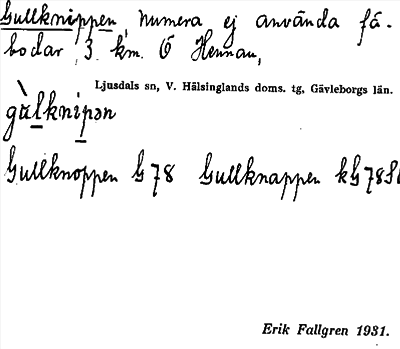 Gullknippen, numera ej använda fä-
bodar, 3 km. Ö Hennan,
Ljusdals sn, V. Hälsinglands doms. tg, Gävleborgs län.
gùlknipən
Gullknoppen G 78 Gullknappen kG 78
Erik Fallgren 1931.